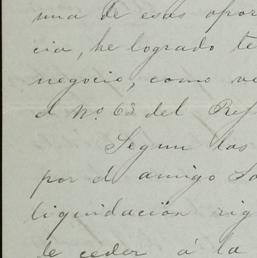 una de esas opor
cia, he logrado te
negocio, como ve
el Nº 63 del Ref
Segun las
por el amigo Sa
liquidación rig
le ceder á la